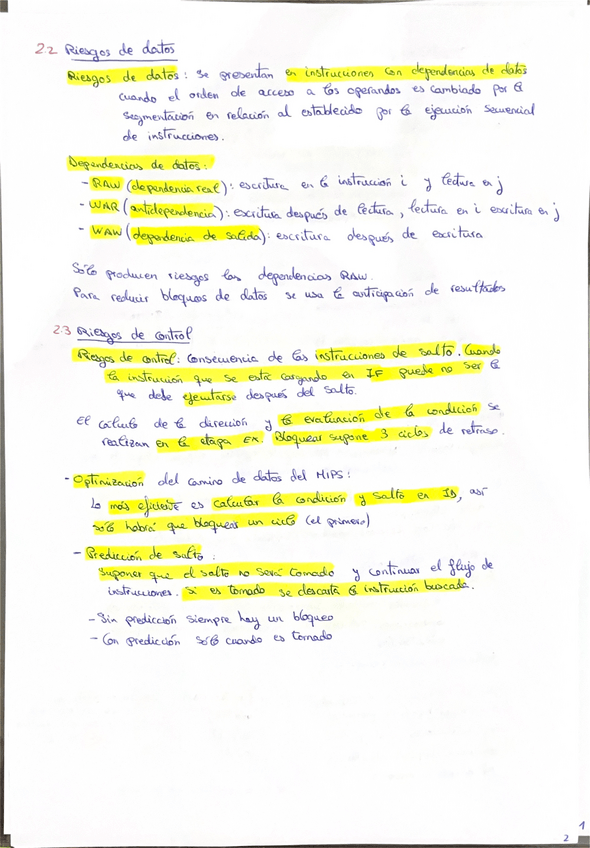 2.2 Riesgos de datos
Riesgos de datos: Se presentan en instrucciones con dependencias de datos
cuando el orden de acceso a los operandos es cambiado por la
segmentación en relación al establecido por la ejecución secuencial
de instrucciones.
Dependencias de datos:
- RAW (dependencia real): escritura en la instrucción i y lectura en j
- WAR (antidependencia): escritura después de lectura, lectura en i escritura en j
- WAW (dependencia de salida): escritura después de escritura
Sólo producen riesgos las dependencias RAW.
Para reducir bloqueos de datos se usa la anticipación de resultados
2.3 Riesgos de control
Riesgos de control: Consecuencia de las instrucciones de salto. Cuando
la instrucción que se está cargando en IF puede no ser la
que debe ejecutarse después del salto.
El cálculo de la dirección y la evaluación de la condición se
realizan en la etapa EX. Bloquear supone 3 ciclos de retraso.
- Optimización del camino de datos del MIPS:
Lo más eficiente es calcular la condición y salto en ID, así
sólo habrá que bloquear un ciclo (el primero)
- Predicción de salto:
Suponer que el salto no será tomado y continuar el flujo de
instrucciones. Si es tomado se descarta la instrucción buscada.
- Sin predicción siempre hay un bloqueo
- Con predicción sólo cuando es tomado
1
2